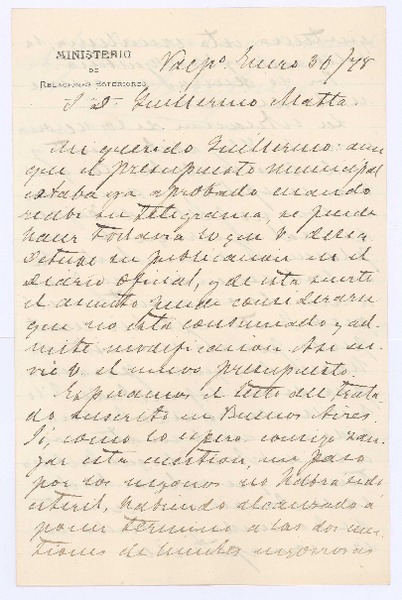 MINISTERIO
DE
RELACIONES ESTERIORES
Valpo. Enero 30/78
S. D. Guillermo Matta
Mi querido Guillermo: aun
que el presupuesto municipal
estaba ya aprobado cuando
recibí su telegrama, se puede
hacer todavia lo que V. desea
Detuve su publicacion en el
Diario Oficial, y de esta suerte
el asunto puede considerarse
que no está consumado y ad-
mite modificacion. Asi en-
vie V. el nuevo presupuesto.
Esperamos el testo del trata
do suscrito en Buenos Aires.
Si, como lo espero consigo zan-
jar esta cuestion, mi paso
por los negocios no habra sido
esteril, habiendo alcanzado a
poner termino a las dos cues-
tiones de limites